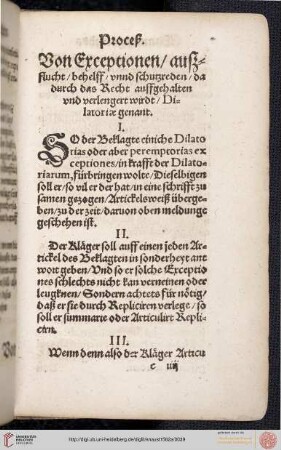 Proceß.
Von Exceptionen/ auß⸗
flucht/ behelff/ vnnd schutzreden/ da
durch das Recht auffgehalten
vnd verlengert wirdt/ Di⸗
latoriæ genant.
I.
SO der Beklagte einiche Dilato
rias oder aber peremptorias ex
ceptiones/ in krafft der Dilato⸗
riarum, fürbringen wolte/ Dieselbigen
soll er/ so vil er der hat/ in eine schrifft zu
samen gezogen/ Artickelsweiß überge⸗
ben/ zu der zeit/ daruon oben meldunge
geschehen ist.
II.
Der Kläger soll auff einen jeden Ar⸗
tickel des Beklagten in sonderheyt ant
wort geben/ Vnd so er solche Exceptio
nes schlechts nicht kan verneinen oder
leugknen/ Sondern achtets für nötig/
daß er sie durch Repliciren verlege/ so
soll er summarie oder Articuliret Repli⸗
cirn.
III.
Wenn denn also der Kläger Articu
c iiij